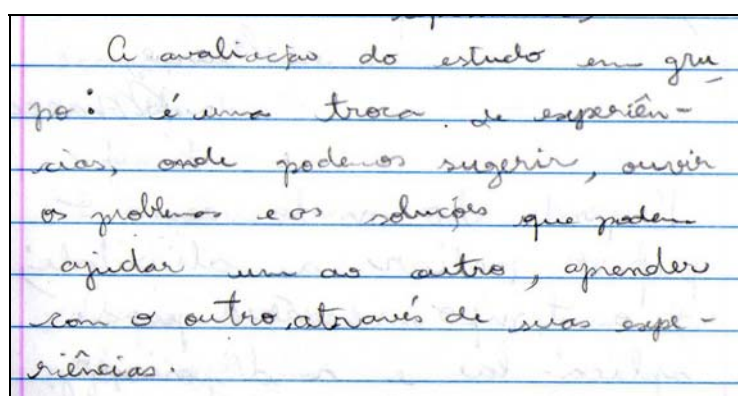 A avaliação do estudo em gru-
po: é uma troca de experiên-
cias, onde podemos sugerir, ouvir
os problemas e as soluções que podem
ajudar um ao outro, aprender
com o outro, através de suas expe-
riências.